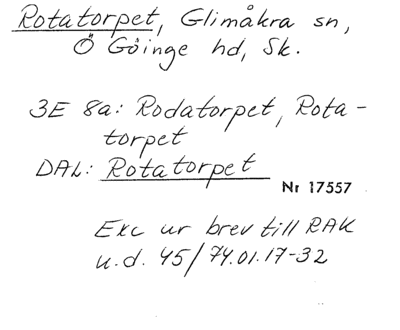 Rotatorpet, Glimåkra sn,
Ö Göinge hd, Sk.
3E 8a: Rodatorpet, Rota-
torpet
DAL: Rotatorpet
Nr 17557
Exc ur brev till RAK
u.d. 45/74.01.17-32